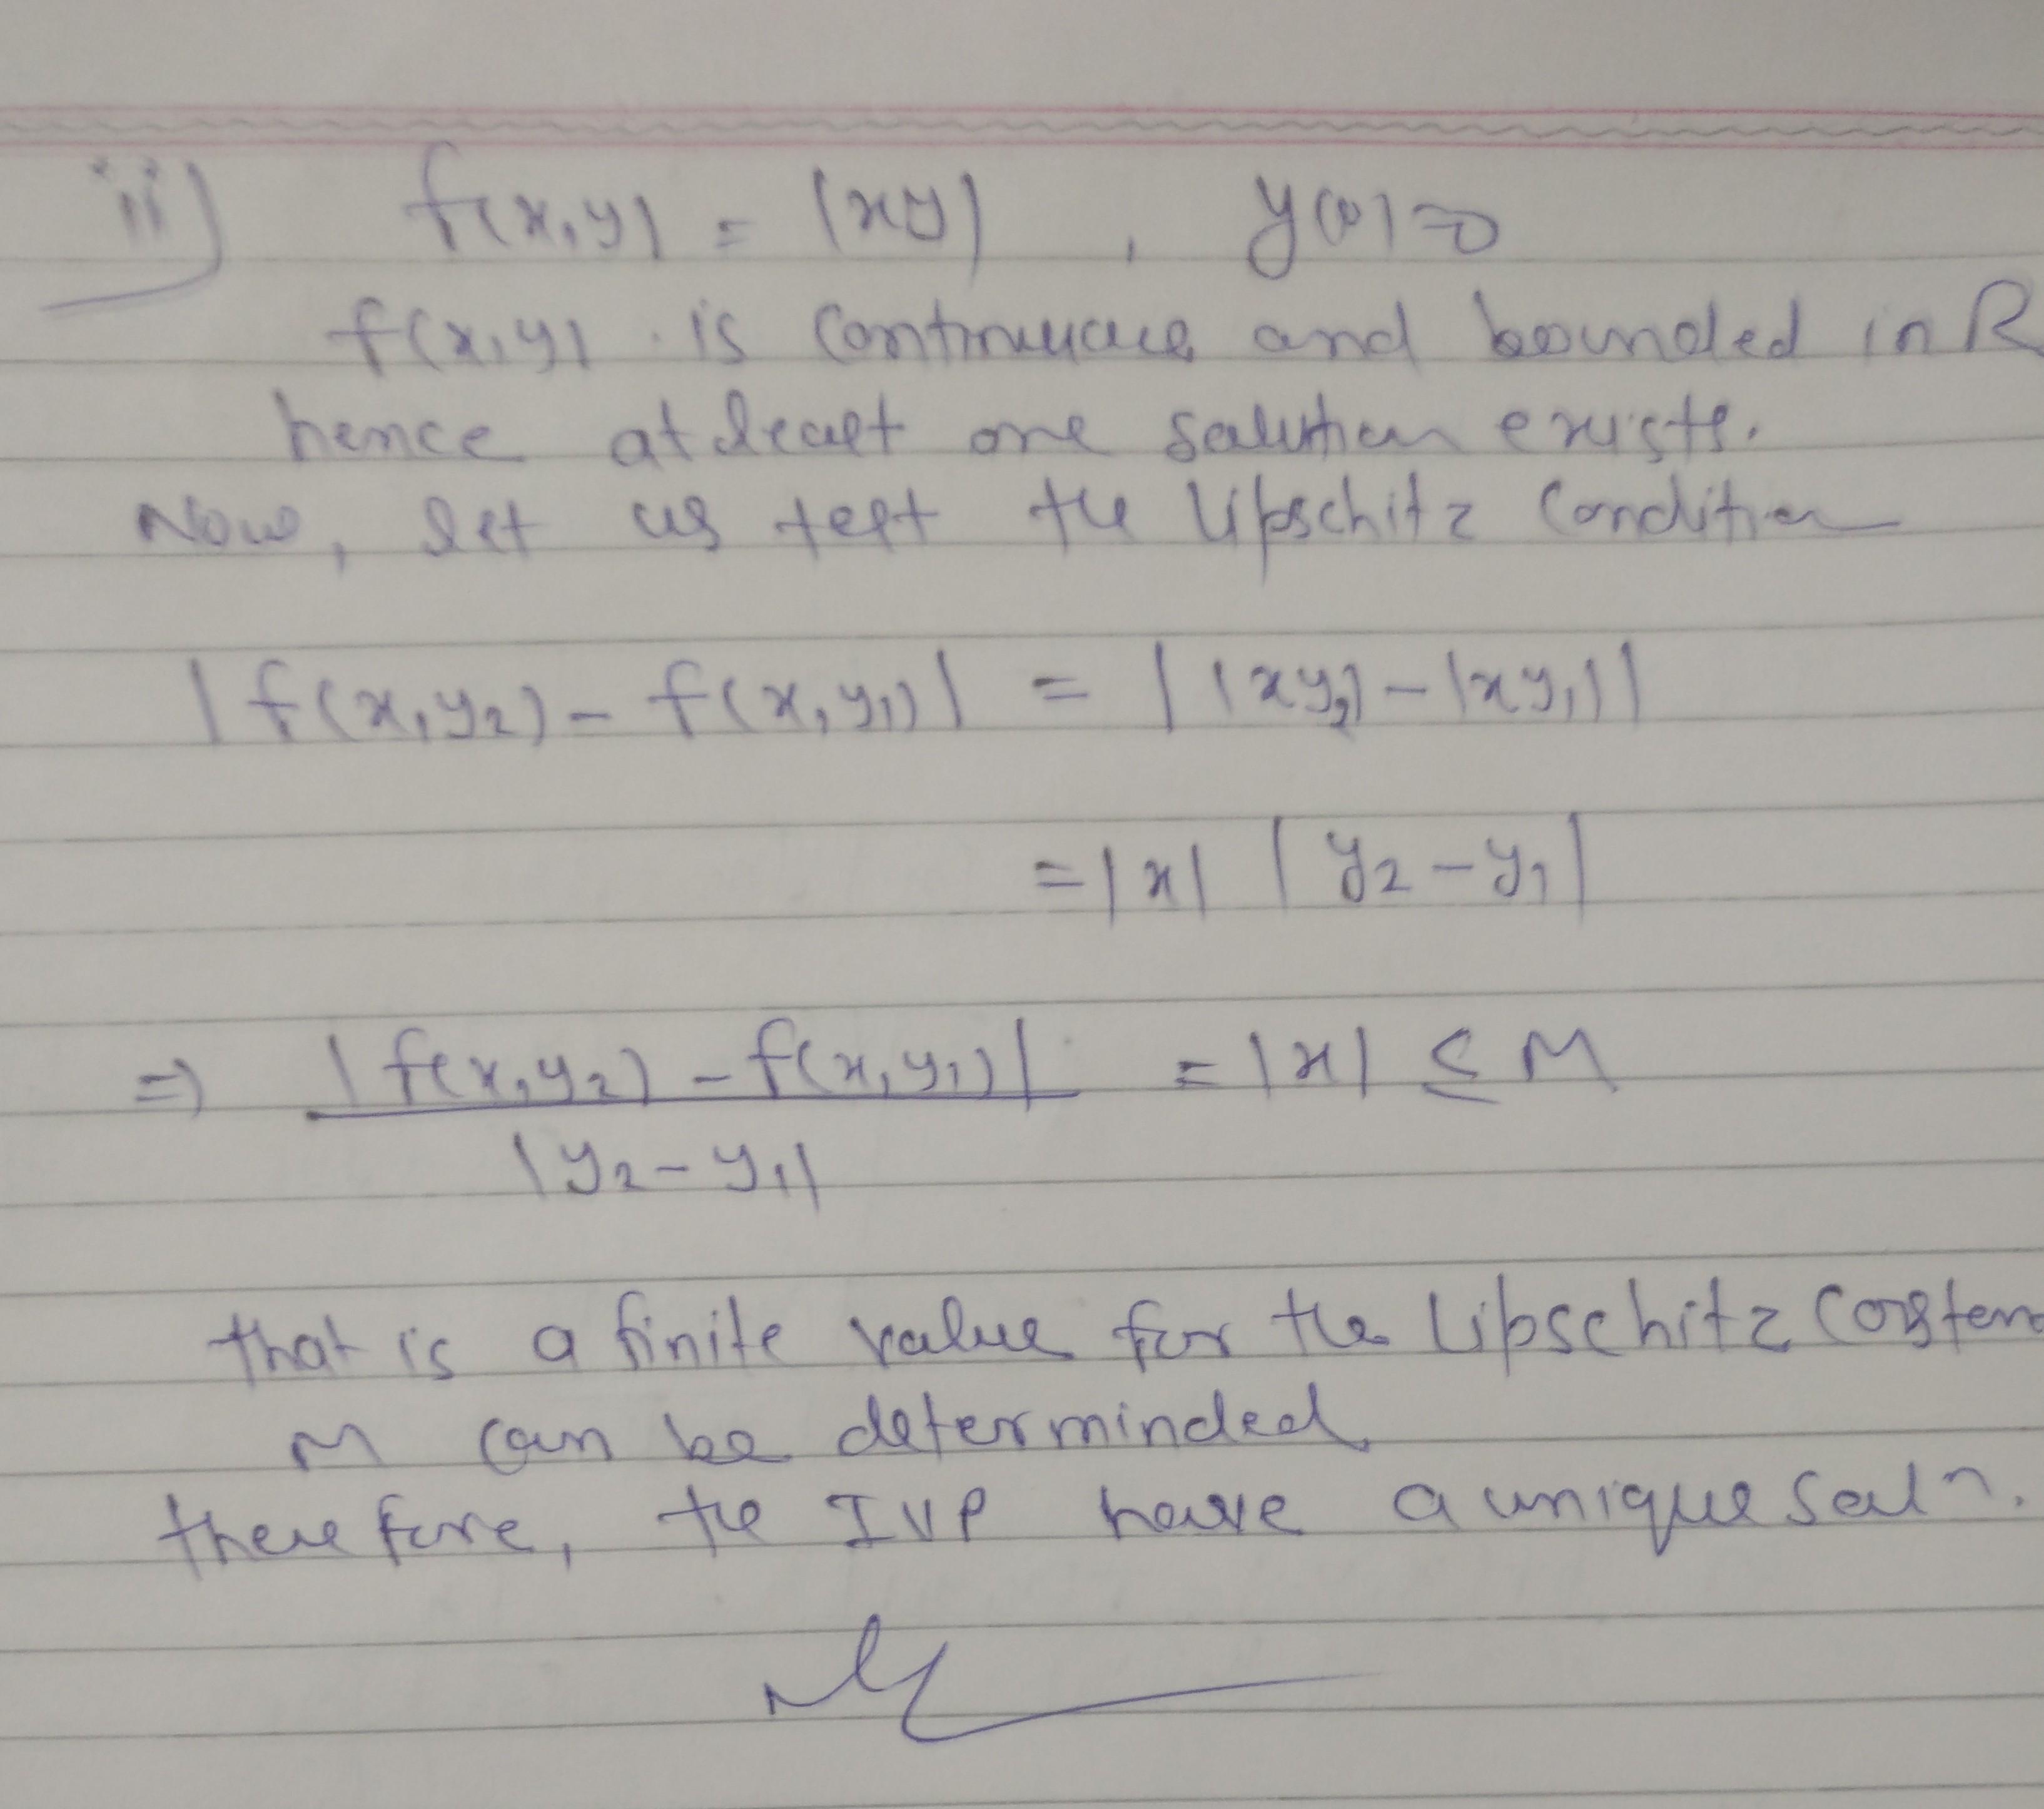 ii) f(x,y) = |xy| , y(0)=0
f(x,y) is continuous and bounded in R
hence at least one solution exists.
Now, let us test the Lipschitz Condition
|f(x,y₂) - f(x,y₁)| = | |xy₂| - |xy₁| |
= |x| |y₂ - y₁|
⇒ |f(x,y₂) - f(x,y₁)| / |y₂ - y₁| = |x| ≤ M
that is a finite value for the Lipschitz
M can be determinded
therefore, the IVP have a unique soln.